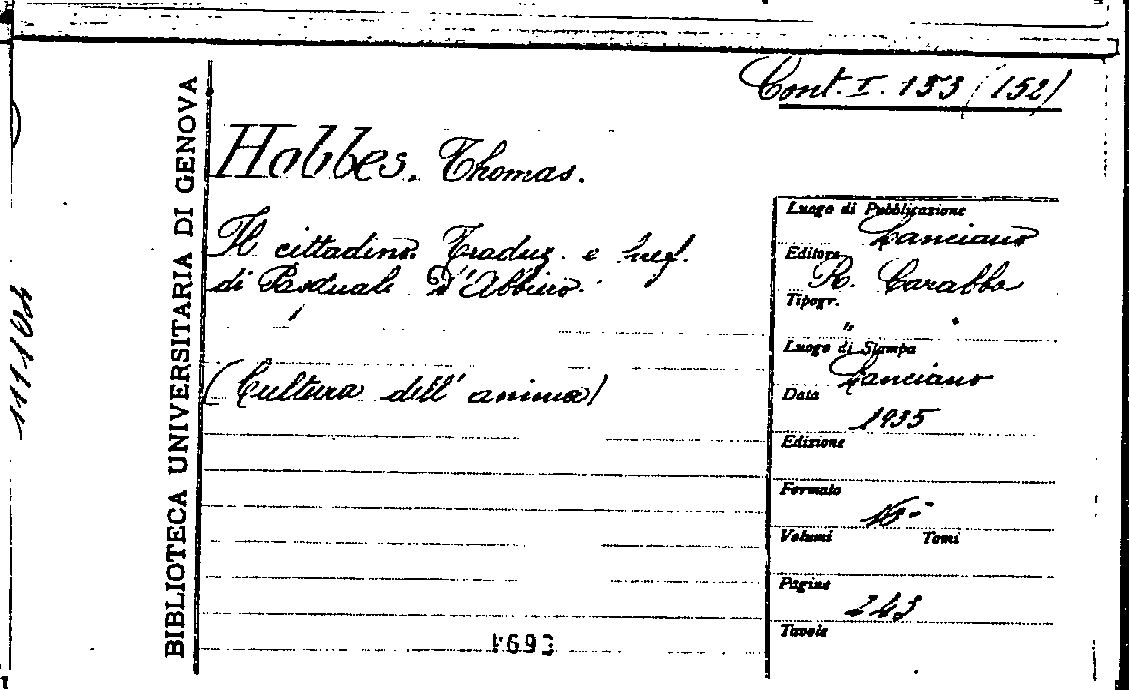 Cont. I. 153 (152)
BIBLIOTECA UNIVERSITARIA DI GENOVA
Hobbes, Thomas.
Il cittadino. Traduz. e pref.
di Pasquale D'Abbiero.
(Cultura dell'anima)
Luogo di Pubblicazione
Lanciano
Editore
R. Carabba
Tipogr.
"
Luogo di Stampa
Lanciano
Data
1935
Edizione
Formato
16-
Volumi Tomi
Pagine
243
Tavole